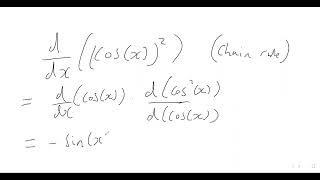 d/dx ((cos(x))²) (chain rule)
= d/dx (cos(x)) · d(cos²(x))/d(cos(x))
= - sin(x